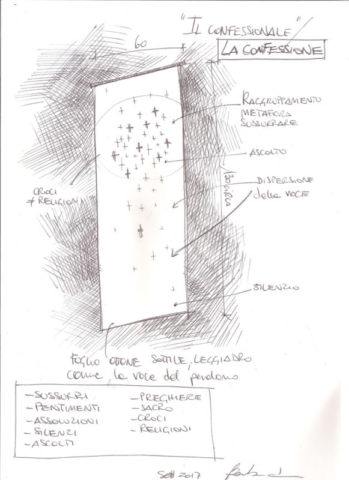 "IL CONFESSIONALE"
LA CONFESSIONE
60
RAGGRUPPAMENTO
METAFORA
SUSSURRARE
ASCOLTO
CROCI
RELIGIONI
130 CIRCA
DISPERSIONE
della VOCE
SILENZIO
FOGLIO OTTONE SOTTILE, LEGGIADRO
come la voce del perdono
-SUSSURRI
-PENTIMENTI
-ASSOLUZIONI
-SILENZI
-ASCOLTI
-PREGHIERE
-SACRO
-CROCI
-RELIGIONI
Sett 2017